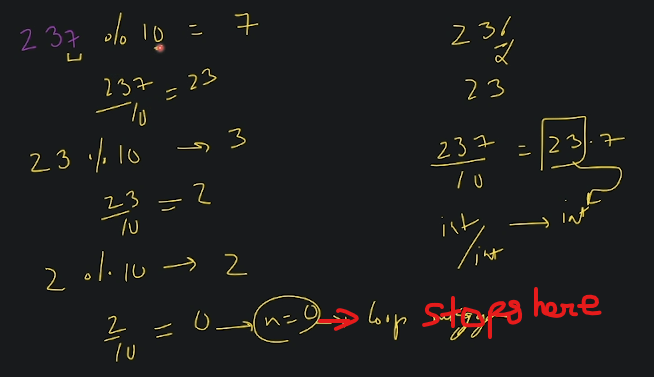 237 % 10 = 7
237/10 = 23
23 % 10 → 3
23/10 = 2
2 % 10 → 2
2/10 = 0 → n=0 → loop stops here
237
23
237/10 = 23.7
int/int → int